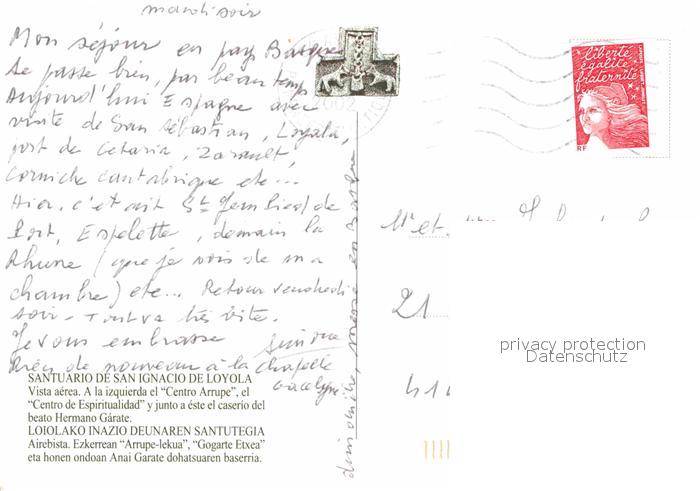 mardi soir
Mon séjour en pays Basque
se passe bien, par beau temps
Aujourd'hui Espagne avec
visite de San Sébastian, Loyola,
port de Getaria, Zarautz,
Corniche cantabrique etc...
Hier, c'était St Jean Pied de
Port, Espelette, demain la
Rhune (que je vois de ma
chambre) etc... Retour vendredi
soir - Tout va très vite.
Je vous embrasse
Simone
de nouveau à la chapelle
dimanche, messe en Basque
SANTUARIO DE SAN IGNACIO DE LOYOLA
Vista aérea. A la izquierda el "Centro Arrupe", el
"Centro de Espiritualidad" y junto a éste el caserío del
beato Hermano Gárate.
LOIOLAKO INAZIO DEUNAREN SANTUTEGIA
Airebista. Ezkerrean "Arrupe-lekua", "Gogarte Etxea"
eta honen ondoan Anai Garate dohatsuaren baserria.
liberté
égalité
fraternité
RF
Mr et
21
41
privacy protection
Datenschutz